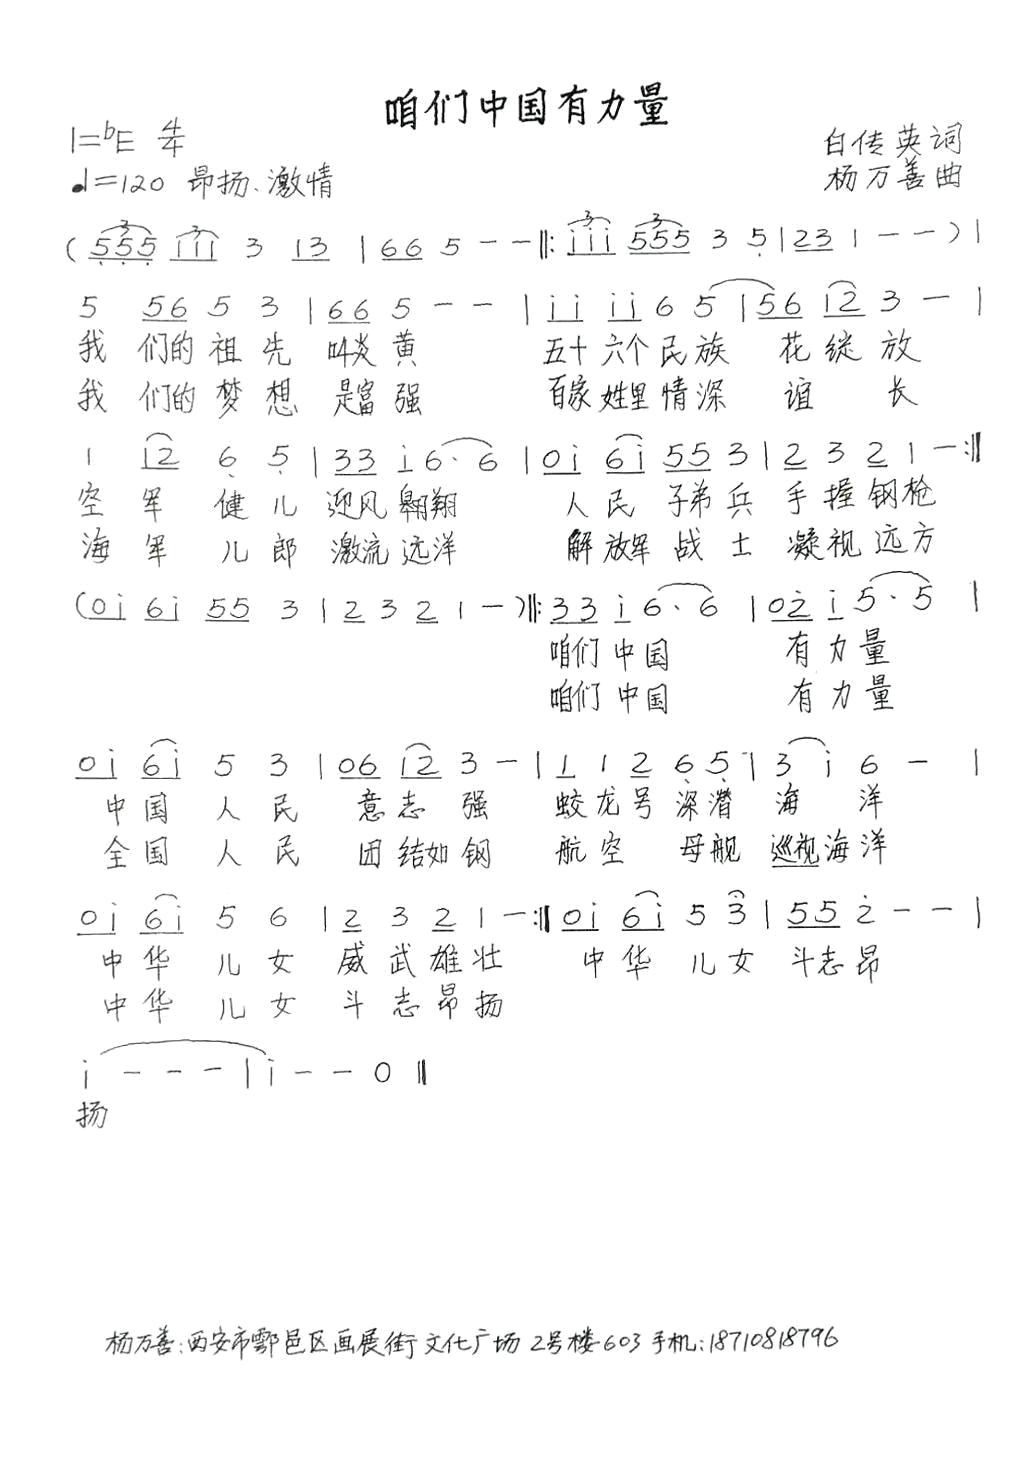 咱们中国有力量
1=ᵇE 4/4
白传英词
♩=120 昂扬、激情
杨万善曲
(5̣5̣5̣ i̇i̇i̇ 3 i̇3 | 66 5 - - ‖: i̇i̇i̇ 555 3 5̣ | 23 1 - - ) |
5 56 5 3 | 66 5 - - | i̇i̇ i̇i̇ 6 5 | 56 i̇2̇ 3 - |
我 们的 祖 先 叫炎 黄 五十 六个 民 族 花 绽 放
我 们的 梦 想 是富 强 百家 姓里 情 深 谊 长
1 12 6̣ 5̣ | 33 i̇ 6· 6 | 0i̇ 6i̇ 55 3 | 2 3 2 1 - :‖
空 军 健 儿 迎风 翱翔 人 民 子弟 兵 手 握 钢枪
海 军 儿 郎 激流 远洋 解 放军 战 士 凝视 远方
(0i̇ 6i̇ 55 3 | 2 3 2 1 - ) ‖: 33 i̇ 6· 6 | 02̇ i̇ 5· 5 |
咱们 中国 有 力 量
咱们 中国 有 力 量
0i̇ 6i̇ 5 3 | 06 i̇2̇ 3 - | 1 1 2 6̣ 5̣ | 3 i̇ 6 - |
中国 人 民 意志 强 蛟龙号 深潜 海 洋
全国 人 民 团结如钢 航空 母舰 巡视海洋
0i̇ 6i̇ 5 6 | 2 3 2 1 - :‖ 0i̇ 6i̇ 5 3̇ | 55 2̇ - - |
中华 儿 女 威 武 雄壮 中华 儿女 斗志昂
中华 儿 女 斗 志 昂扬
i̇ - - - | i̇ - - 0 ‖
扬
杨万善:西安市鄠邑区画展街 文化广场 2号楼603 手机:18710818796